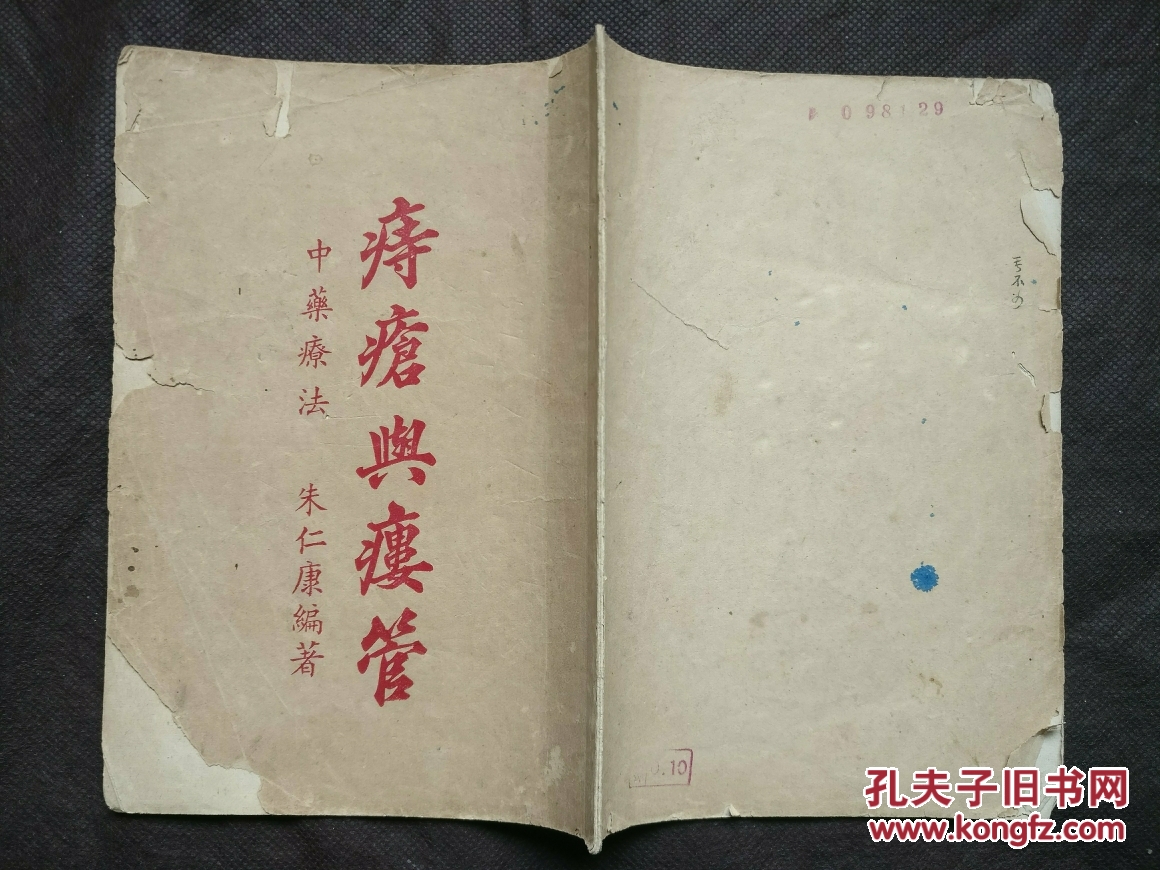 痔瘡與瘻管
中藥療法 朱仁康編著
098129
.10
孔夫子旧书网
www.kongfz.com